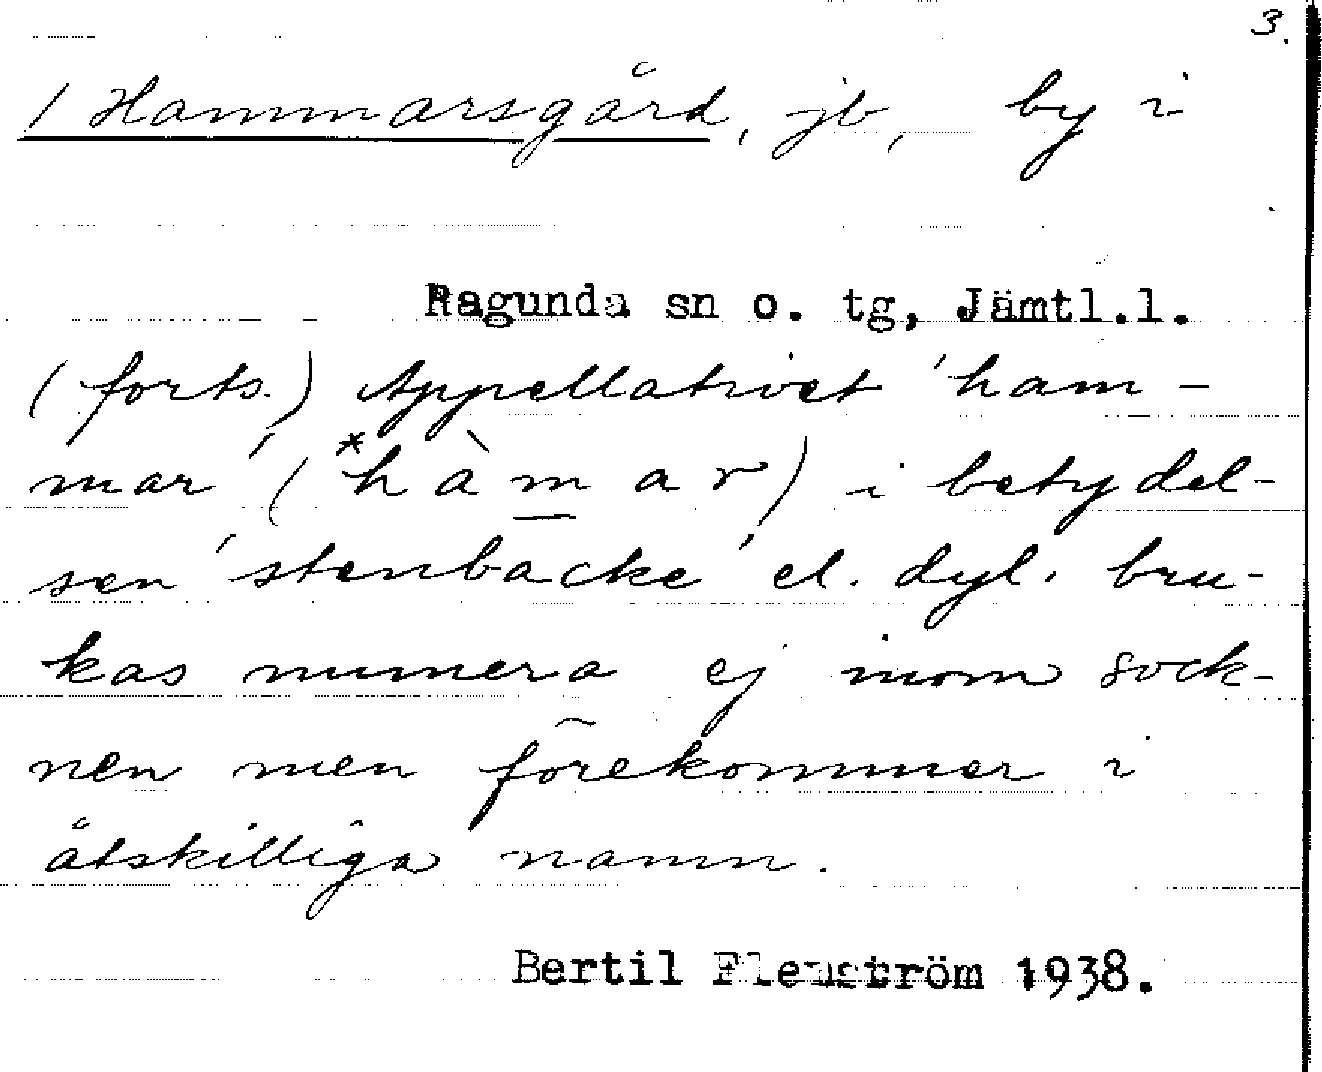 3.
/ Hammarsgård, jb, by i
Ragunda sn o. tg, Jämtl.l.
(forts.) Appellativet 'ham-
mar' (*hàmar) i betydel-
sen 'stenbacke' el. dyl. bru-
kas numera ej inom sock-
nen men förekommer i
åtskilliga namn.
Bertil Flemström 1938.